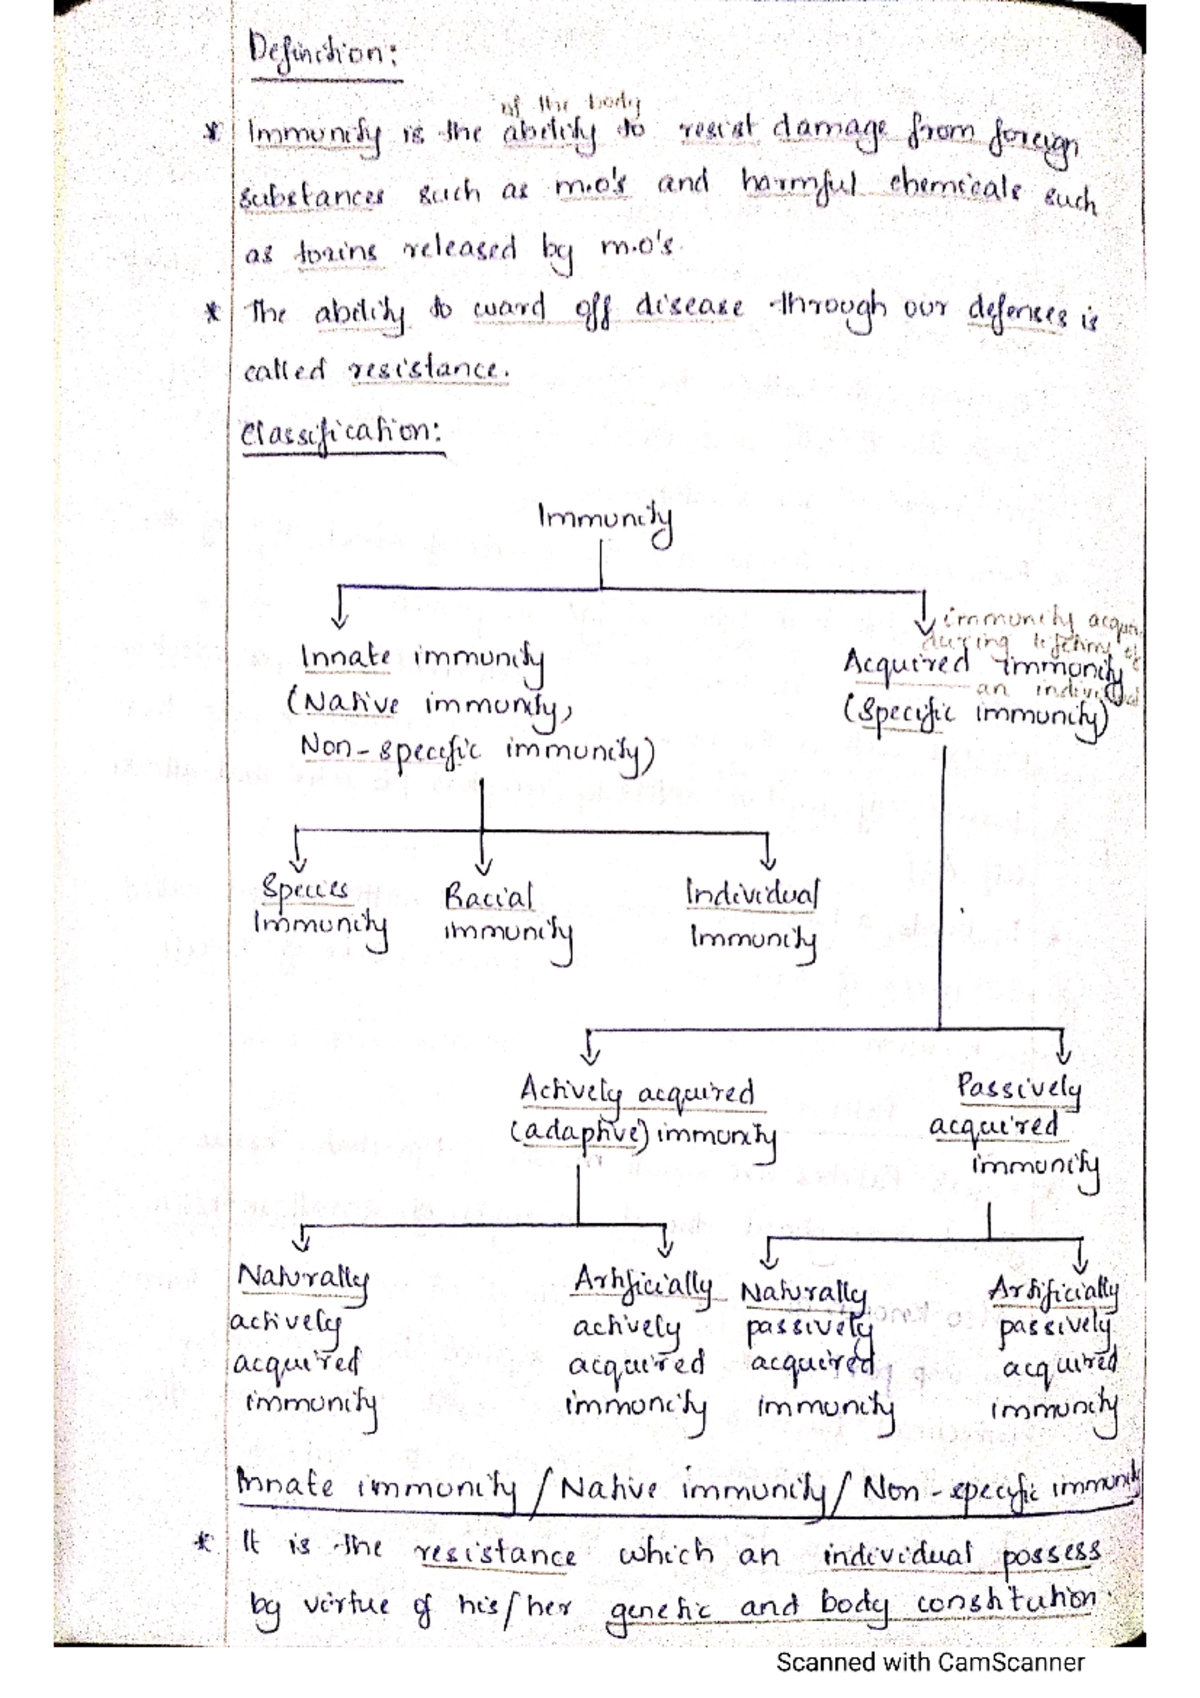 Definition:
of the body
* Immunity is the ability to resist damage from foreign
substances such as m.o's and harmful chemicals such
as toxins released by m.o's.
* The ability to ward off disease through our defenses is
called resistance.
Classification:
Immunity
immunity acquir
during lifetime of
an individual
Innate immunity
(Native immunity,
Non-specific immunity)
Acquired immunity
(Specific immunity)
Species
Immunity
Racial
immunity
Individual
Immunity
Actively acquired
(adaptive) immunity
Passively
acquired
immunity
Naturally
actively
acquired
immunity
Artificially
actively
acquired
immunity
Naturally
passively
acquired
immunity
Artificially
passively
acquired
immunity
Innate immunity / Native immunity / Non-specific immunity
* It is the resistance which an individual possess
by virtue of his/her genetic and body constitution.
Scanned with CamScanner